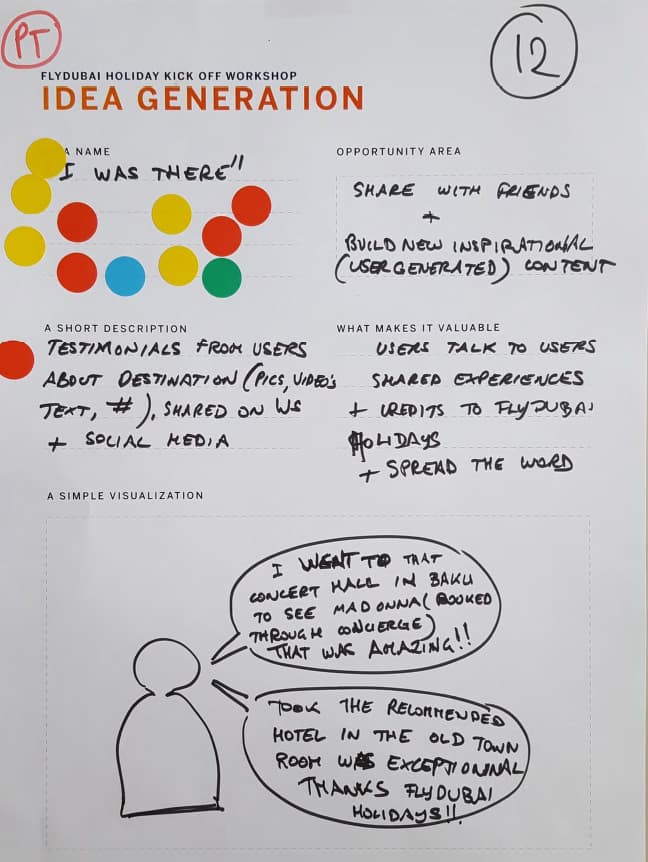 PT
12
FLYDUBAI HOLIDAY KICK OFF WORKSHOP
IDEA GENERATION
A NAME
I WAS THERE"
OPPORTUNITY AREA
SHARE WITH FRIENDS
+
BUILD NEW INSPIRATIONAL
(USER GENERATED) CONTENT
A SHORT DESCRIPTION
TESTIMONIALS FROM USERS
ABOUT DESTINATION (PICS, VIDEO'S
TEXT, #), SHARED ON WS
+ SOCIAL MEDIA
WHAT MAKES IT VALUABLE
USERS TALK TO USERS
SHARED EXPERIENCES
+ CREDITS TO FLYDUBAI
HOLIDAYS
+ SPREAD THE WORD
A SIMPLE VISUALIZATION
I WENT TO THAT
CONCERT HALL IN BAKU
TO SEE MADONNA (BOOKED
THROUGH CONCIERGE)
THAT WAS AMAZING!!
TOOK THE RECOMMENDED
HOTEL IN THE OLD TOWN
ROOM WAS EXCEPTIONNAL
THANKS FLYDUBAI
HOLIDAYS!!